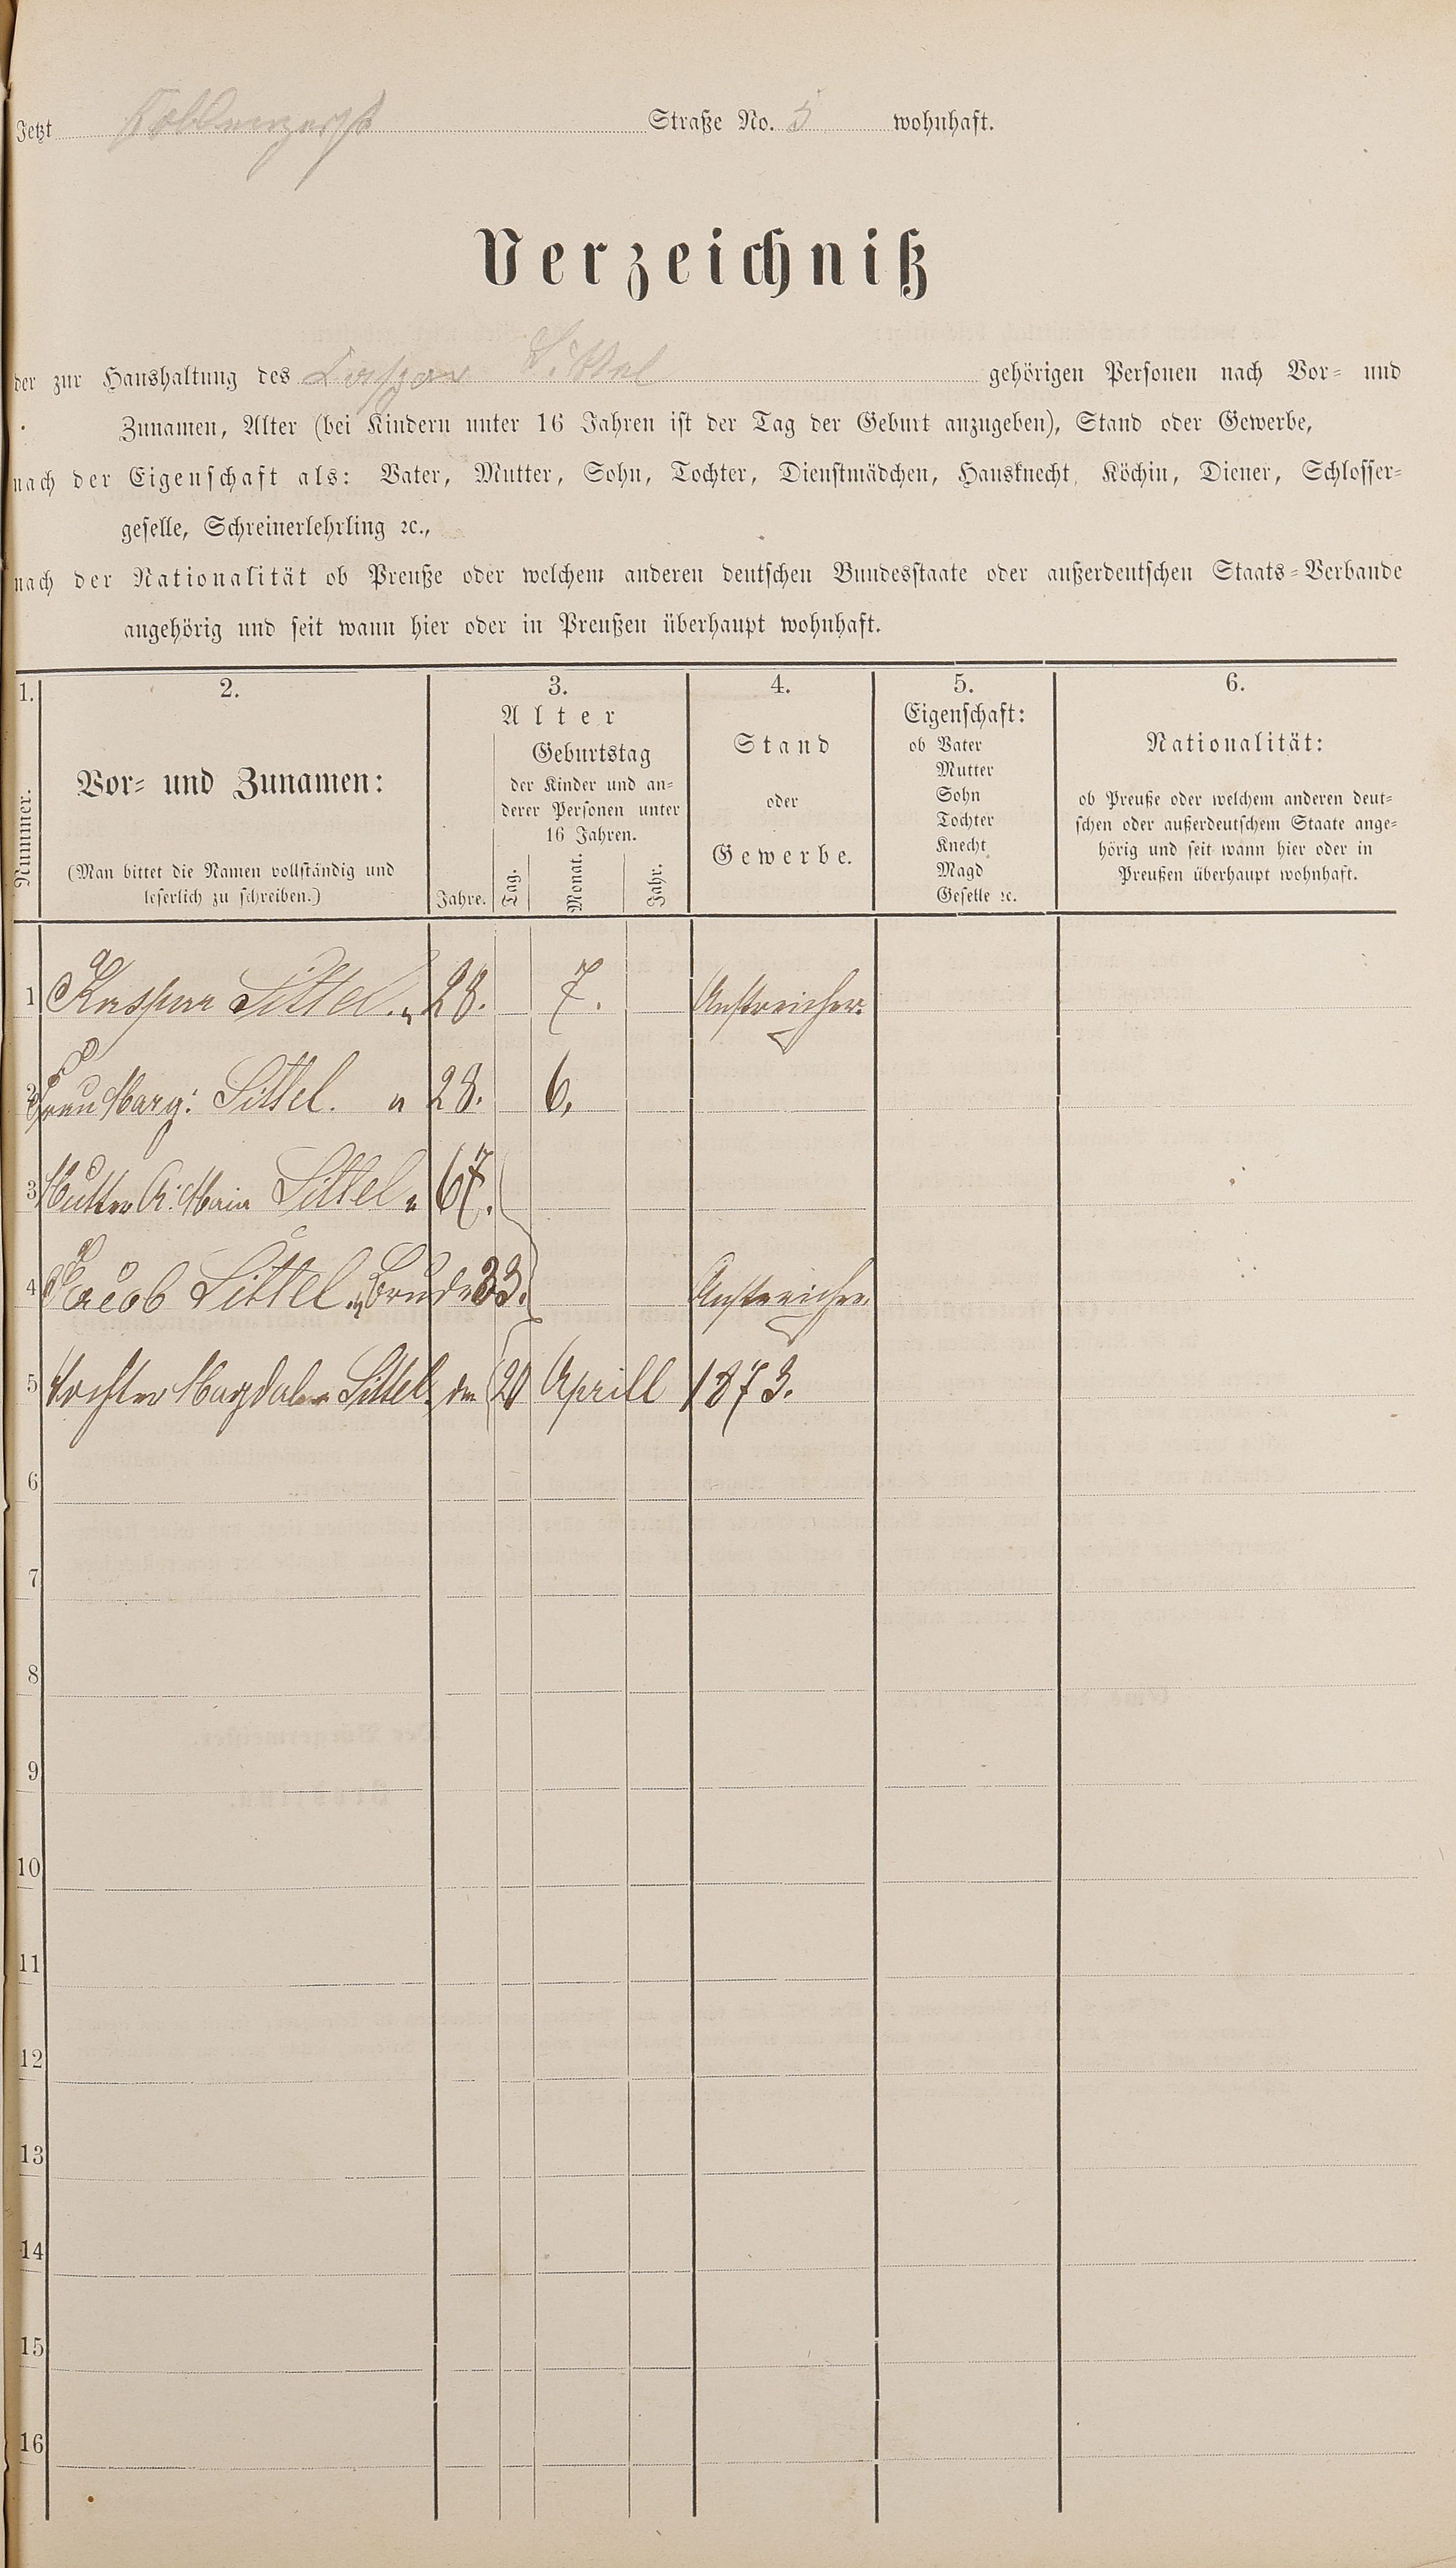 Jetzt Coblenzerst Straße No. 5 wohnhaft.
Verzeichniß
der zur Haushaltung des Caspar Sittel gehörigen Personen nach Vor- und
Zunamen, Alter (bei Kindern unter 16 Jahren ist der Tag der Geburt anzugeben), Stand oder Gewerbe,
nach der Eigenschaft als: Vater, Mutter, Sohn, Tochter, Dienstmädchen, Hausknecht, Köchin, Diener, Schlosser-
geselle, Schreinerlehrling ꝛc.,
nach der Nationalität ob Preuße oder welchem anderen deutschen Bundesstaate oder außerdeutschen Staats-Verbande
angehörig und seit wann hier oder in Preußen überhaupt wohnhaft.
1.
Nummer.
2.
Vor- und Zunamen:
(Man bittet die Namen vollständig und
leserlich zu schreiben.)
3.
Alter
Jahre.
Geburtstag
der Kinder und an-
derer Personen unter
16 Jahren.
Tag.
Monat.
Jahr.
4.
Stand
oder
Gewerbe.
5.
Eigenschaft:
ob Vater
Mutter
Sohn
Tochter
Knecht
Magd
Geselle ꝛc.
6.
Nationalität:
ob Preuße oder welchem anderen deut-
schen oder außerdeutschem Staate ange-
hörig und seit wann hier oder in
Preußen überhaupt wohnhaft.
1 Kaspar Sittel. 28. 7. Anstreicher.
2 Frau Marg: Sittel. 28. 6.
3 Mutter A: Maria Sittel 67.
4 Jacob Sittel. Bruder 33. Anstreicher.
5 Tochter Magdalena Sittel. den 20 Aprill 1873.
6
7
8
9
10
11
12
13
14
15
16